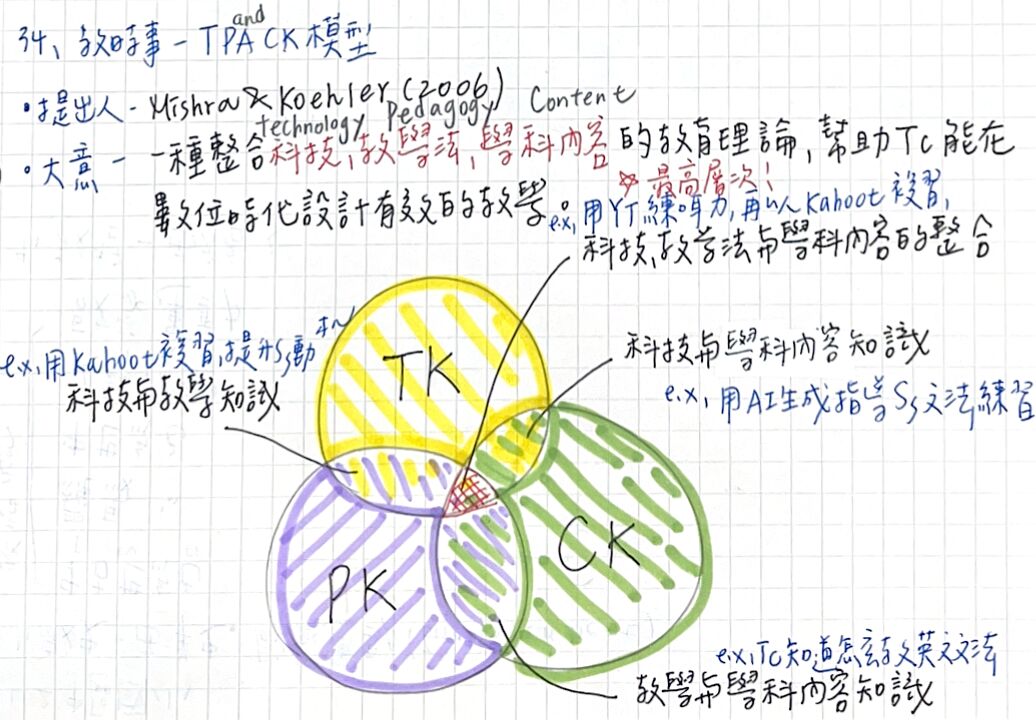 34、教時事-TPACK模型
and
•提出人- Mishra & Koehler (2006)
technology Pedagogy Content
•大意- 一種整合科技,教學法,學科內容的教育理論,幫助Tc能在
數位時代設計有效的教學
☆最高層次!
e.x,用YT練聽力,再以Kahoot複習,
科技,教學法與學科內容的整合
e.x,用Kahoot複習,提升Ss動機
科技與教學知識
TK
科技與學科內容知識
e.x,用AI生成指導Ss文法練習
PK
CK
e.x,Tc知道怎麼教英文文法
教學與學科內容知識